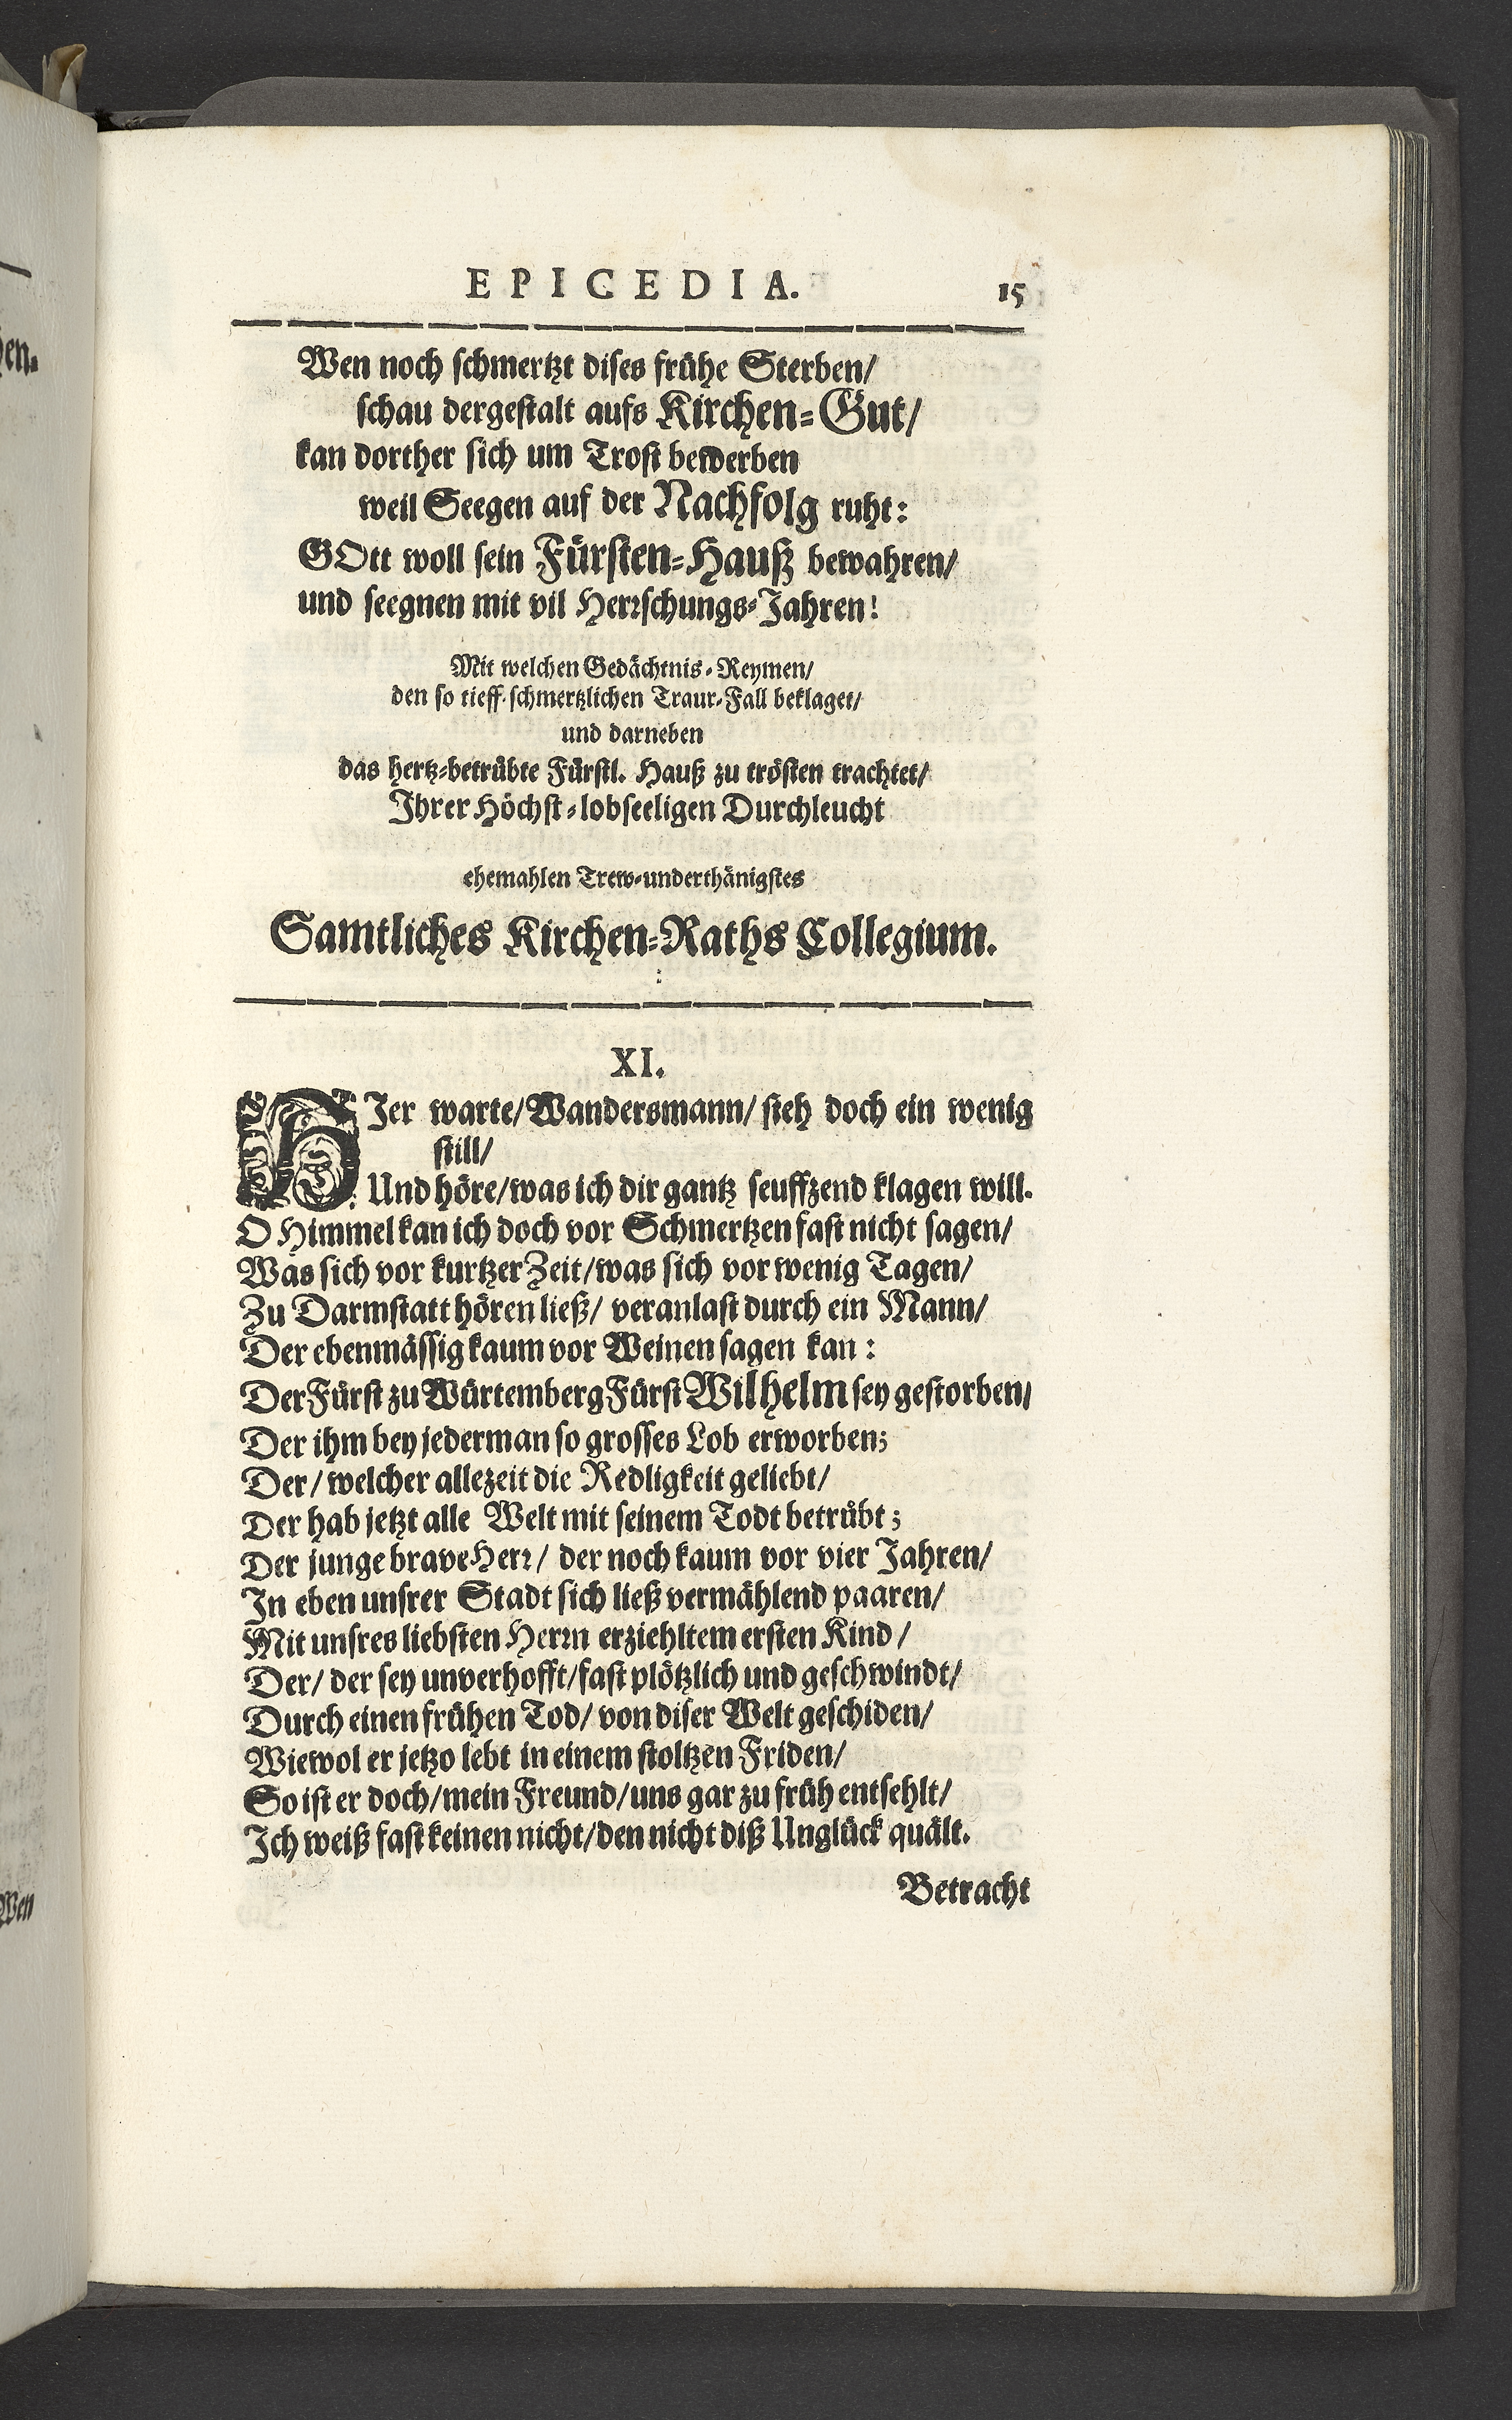 EPICEDIA. 15
Wen noch schmertzt dises frühe Sterben/
schau dergestalt aufs Kirchen-Gut/
kan dorther sich um Trost bewerben
weil Seegen auf der Nachfolg ruht:
GOtt woll sein Fürsten-Hauß bewahren/
und seegnen mit vil Herrschungs-Jahren!
Mit welchen Gedächtnis-Reymen/
den so tieff-schmertzlichen Traur-Fall beklaget/
und darneben
das hertz-betrübte Fürstl. Hauß zu trösten trachtet/
Ihrer Höchst-lobseeligen Durchleucht
ehemahlen Trew-underthänigstes
Samtliches Kirchen-Raths Collegium.
XI.
HIer warte/ Wandersmann/ steh doch ein wenig
still/
Und höre/ was ich dir gantz seuffzend klagen will.
O Himmel kan ich doch vor Schmertzen fast nicht sagen/
Was sich vor kurtzer Zeit/ was sich vor wenig Tagen/
Zu Darmstatt hören ließ/ veranlast durch ein Mann/
Der ebenmässig kaum vor Weinen sagen kan:
Der Fürst zu Würtemberg Fürst Wilhelm sey gestorben/
Der ihm bey jederman so grosses Lob erworben;
Der/ welcher allezeit die Redligkeit geliebt/
Der hab jetzt alle Welt mit seinem Todt betrübt;
Der junge brave Herr/ der noch kaum vor vier Jahren/
In eben unsrer Stadt sich ließ vermählend paaren/
Mit unsres liebsten Herrn erziehltem ersten Kind/
Der/ der sey unverhofft/ fast plötzlich und geschwindt/
Durch einen frühen Tod/ von diser Welt geschiden/
Wiewol er jetzo lebt in einem stoltzen Friden/
So ist er doch/ mein Freund/ uns gar zu früh entsehlt/
Ich weiß fast keinen nicht/ den nicht diß Unglück quält.
Betracht
Wen